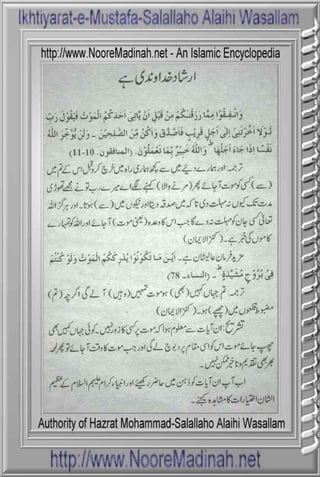 Ikhtiyarat-e-Mustafa-Salallaho Alaihi Wasallam
http://www.NooreMadinah.net - An Islamic Encyclopedia
ارشاد خداوندی ہے
وَانْفِقُوا مِمَّا رَزَقْنٰكُمْ مِنْ قَبْلِ اَنْ يَّاْتِيَ اَحَدَكُمُ الْمَوْتُ فَيَقُوْلَ رَبِّ
لَوْلَا اَخَّرْتَنِيْ اِلٰى اَجَلٍ قَرِيْبٍ فَاَصَّدَّقَ وَاَكُنْ مِّنَ الصّٰلِحِيْنَ ۔ وَلَنْ يُّؤَخِّرَ اللّٰهُ
نَفْسًا اِذَا جَآءَ اَجَلُهَا ؕ وَاللّٰهُ خَبِيْرٌ بِمَا تَعْمَلُوْنَ ۔ (المنافقون۔ 11-10)
ترجمہ: اور ہمارے دیئے میں سے کچھ ہماری راہ میں خرچ کرو قبل اس کے تم میں
(سے) کسی کو موت آجائے پھر (مرنے والا) کہنے لگے اے میرے رب تو نے مجھے تھوڑی
مدت تک کیوں نہ مہلت دی تاکہ میں صدقہ دیتا اور نیکوں میں (سے) ہوتا۔ اور ہرگز اللہ
تعالیٰ کسی جان کو مہلت نہ دے گا جب اس کا وعدہ (یعنی موت) آجائے اور اللہ کو تمہارے
کاموں کی خبر ہے۔ (کنزالایمان)
مزید فرمان عالیشان ہے۔ اَيْنَ مَا تَكُوْنُوْا يُدْرِكْكُّمُ الْمَوْتُ وَلَوْ كُنْتُمْ
فِيْ بُرُوْجٍ مُّشَيَّدَةٍ ؕ (النساء۔ 78)
ترجمہ: تم جہاں کہیں (بھی) ہو موت تمہیں (وہیں) آلے گی اگرچہ (تم)
مضبوط قلعوں میں (چھپے) ہو۔ (کنزالایمان)
تشریح: ان آیات سے معلوم ہوا کہ موت پر کسی کا زور نہیں۔ کوئی جہاں کہیں بھی
چھپ جائے موت اس کو اسی مقام پر دبوچ لے گی اور جب موت کا وقت آجائے تو پھر لمحہ
بھر بھی تقدیم و تاخیر ممکن نہیں۔
اب آپ ان آیات کو ذہن میں حاضر رکھیئے اور انبیاء کرام علیہم السلام کے عظیم
الشان اختیارات کا مشاہدہ کیجئے۔
Authority of Hazrat Mohammad-Salallaho Alaihi Wasallam
http://www.NooreMadinah.net